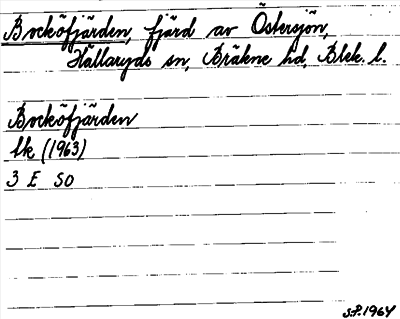 Bocköfjärden, fjärd av Östersjön,
Hällaryds sn, Bräkne hd, Blek. l.
Bocköfjärden
Ek (1963)
3 E SO
S.P. 1964